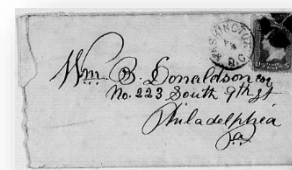 WASHINGTON
D.C.
Wm. B. Donaldson Esq
No. 223 South 9th St
Philadelphia
Pa